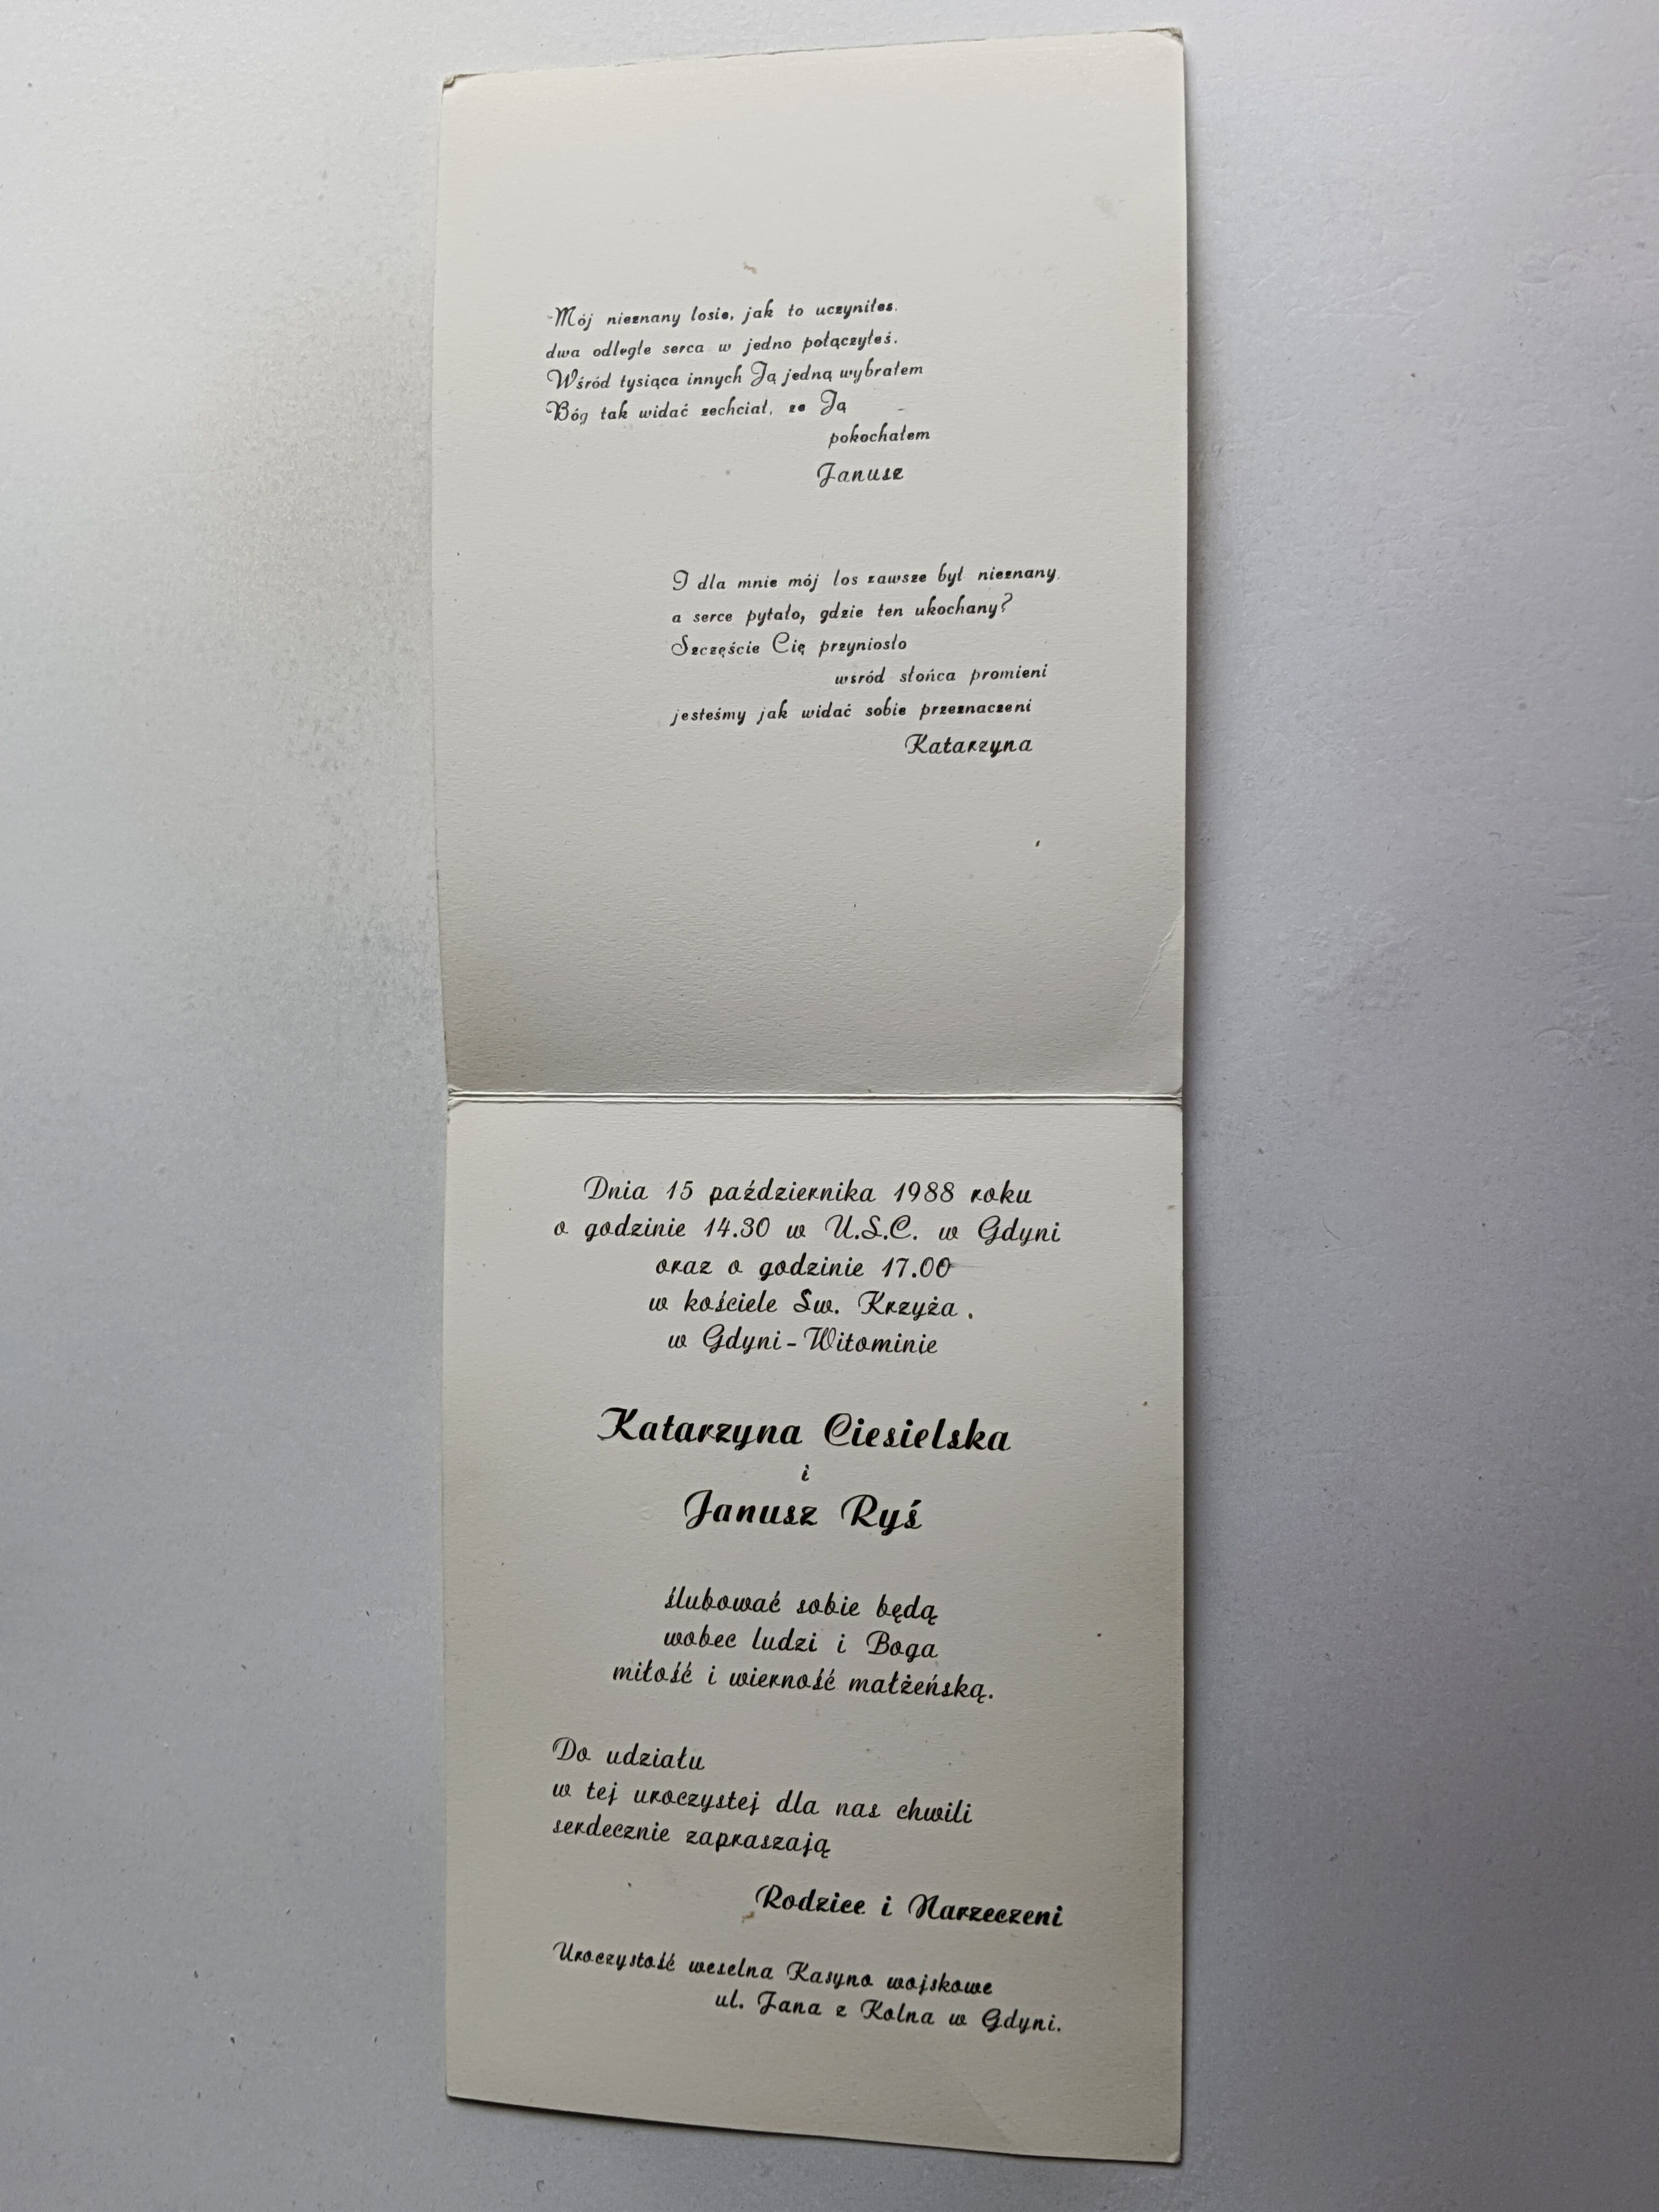 Mój nieznany losie, jak to uczyniłes.
dwa odległe serca w jedno połączyłeś.
Wśród tysiąca innych Ją jedną wybrałem
Bóg tak widać zechciał, ze Ją
pokochałem
Janusz
I dla mnie mój los zawsze był nieznany.
a serce pytało, gdzie ten ukochany?
Szczęście Cię przyniosło
wsród słońca promieni
jesteśmy jak widać sobie przeznaczeni
Katarzyna
Dnia 15 października 1988 roku
o godzinie 14.30 w U.S.C. w Gdyni
oraz o godzinie 17.00
w kościele Św. Krzyża.
w Gdyni-Witominie
Katarzyna Ciesielska
i
Janusz Ryś
ślubować sobie będą
wobec ludzi i Boga
miłość i wierność małżeńską.
Do udziału
w tej uroczystej dla nas chwili
serdecznie zapraszają
Rodzice i Narzeczeni
Uroczystość weselna Kasyno wojskowe
ul. Jana z Kolna w Gdyni.